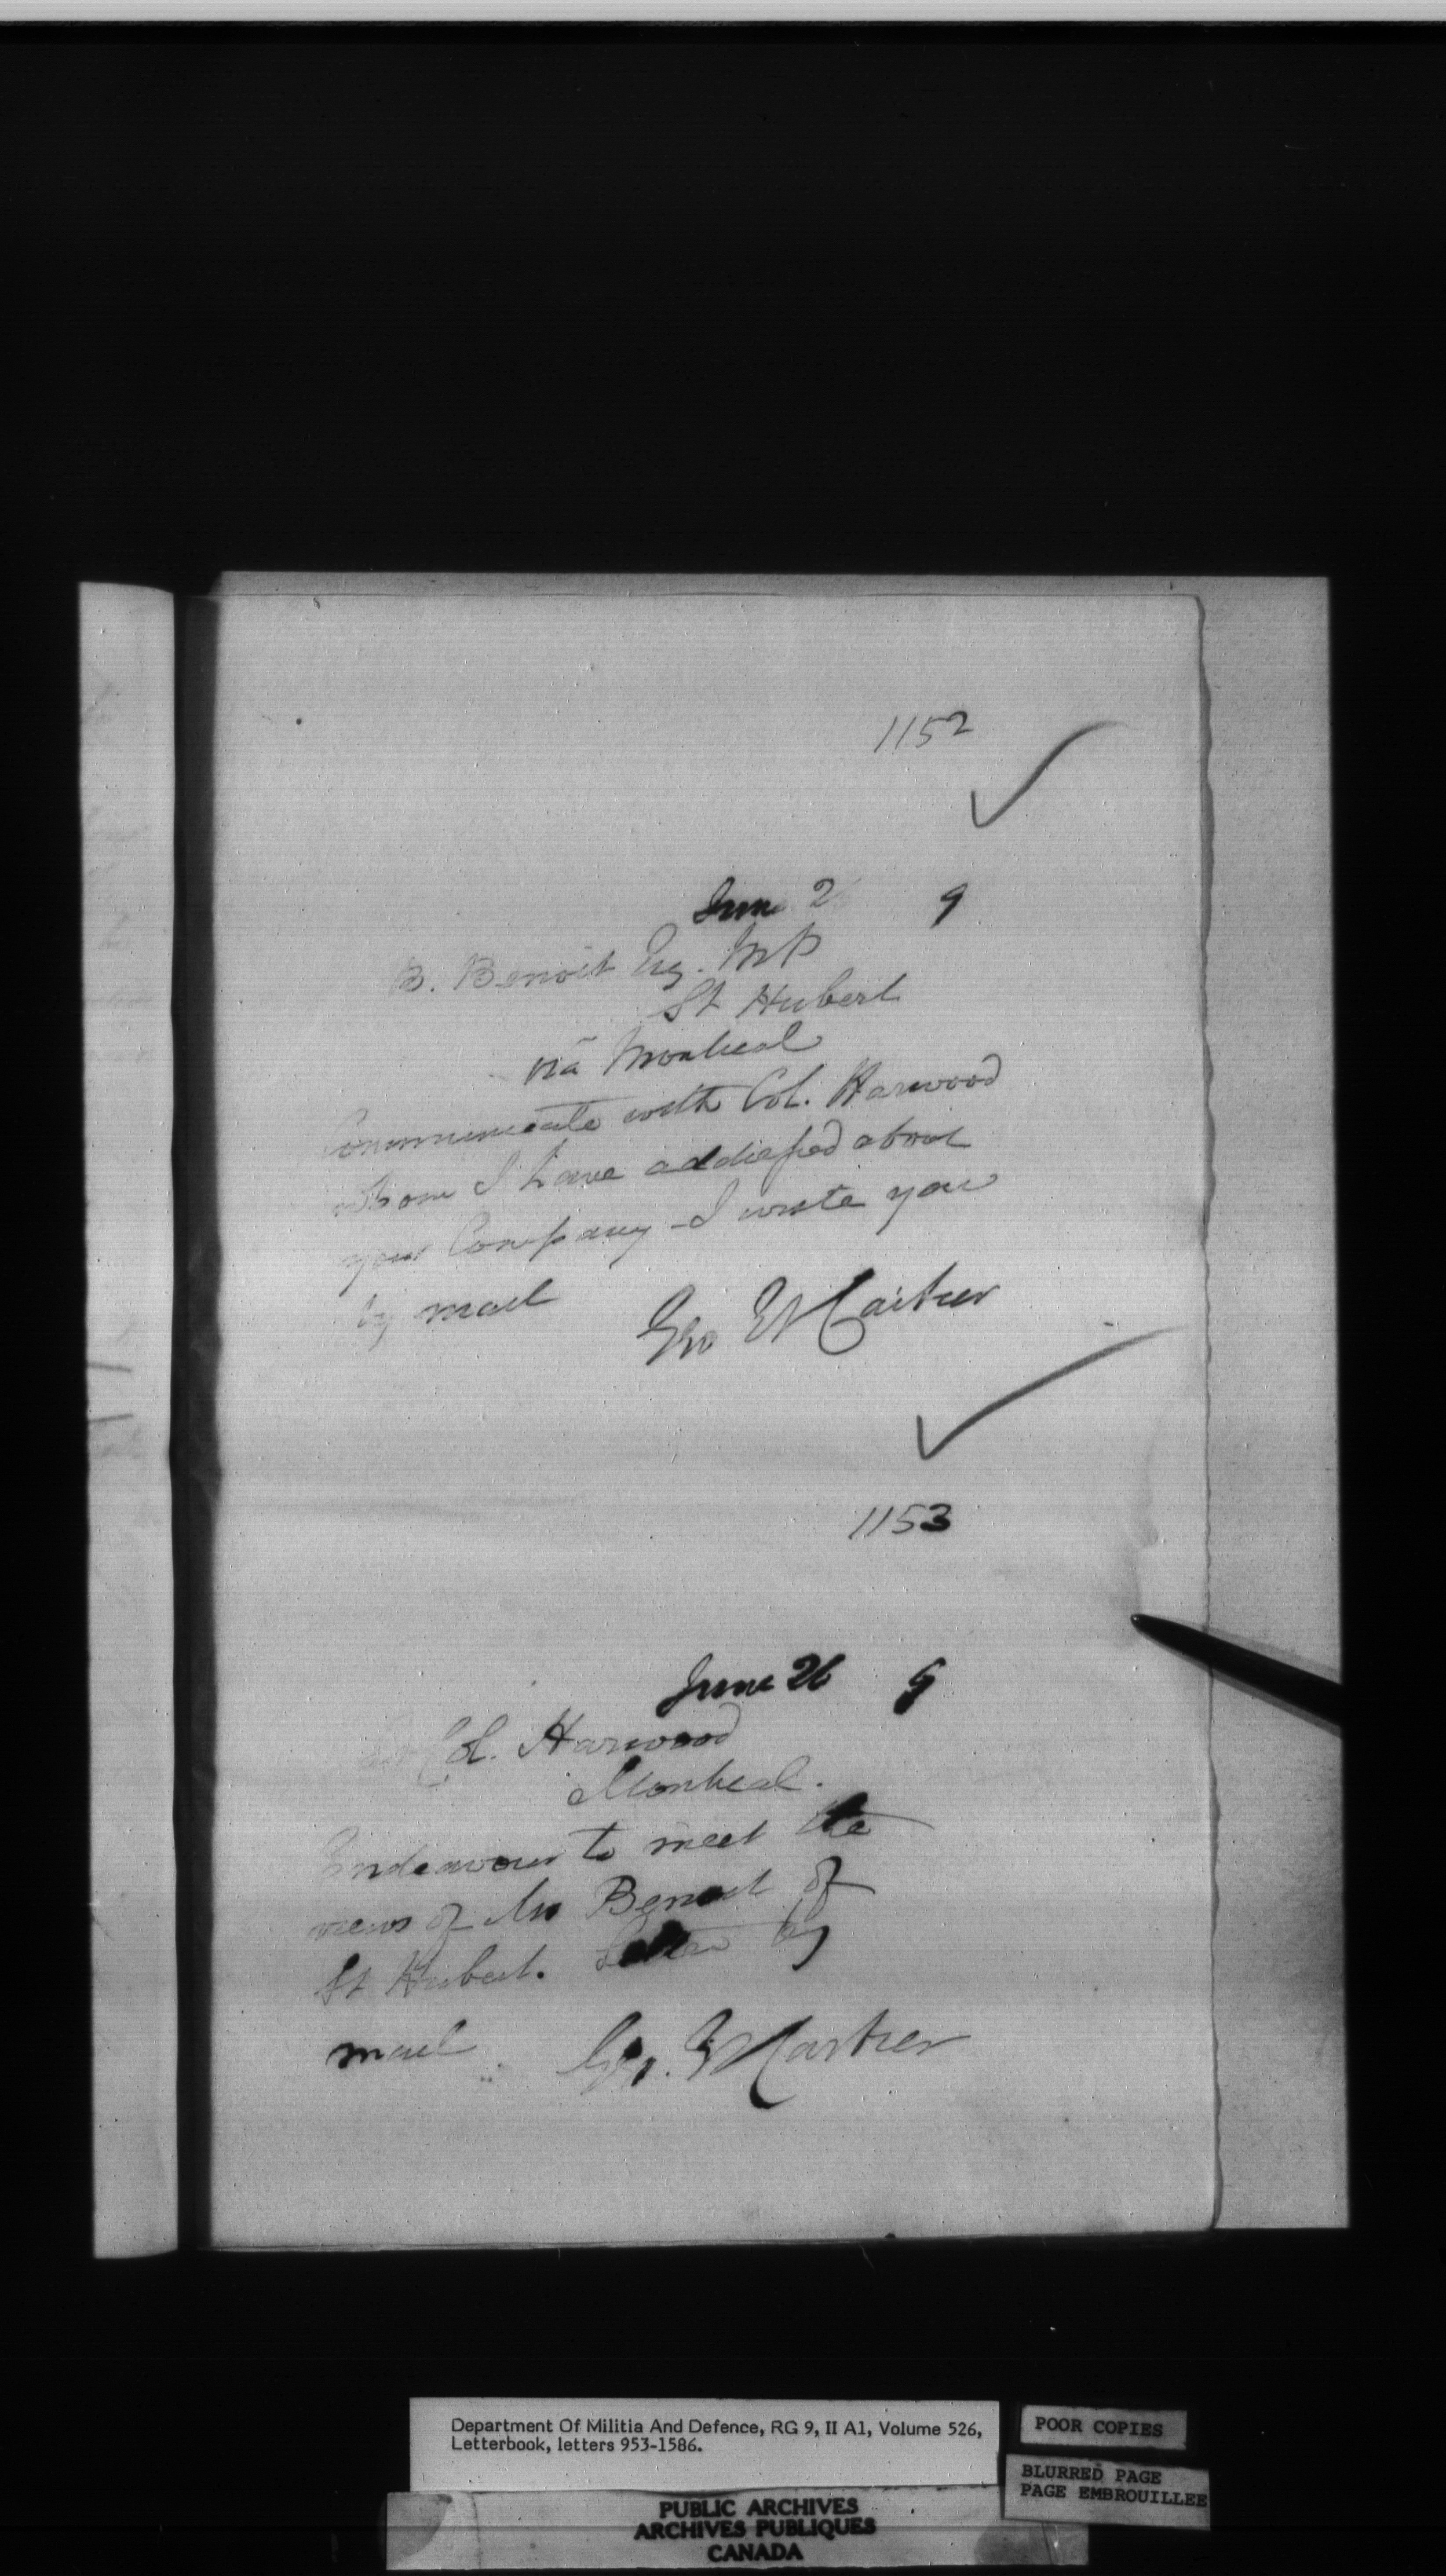 1152
June 2 9
B. Benoit Esq. MP
St Hubert
via Montreal
Communicate with Col. Harwood
whom I have addressed about
your Company - I wrote you
by mail Geo E Cartier
1153
June 26 9
Col. Harwood
Montreal.
Endeavour to meet the
views of Mr Benoit of
St Hubert. Letter by
mail Geo. E Cartier
Department Of Militia And Defence, RG 9, II A1, Volume 526,
Letterbook, letters 953-1586.
POOR COPIES
BLURRED PAGE
PAGE EMBROUILLEE
PUBLIC ARCHIVES
ARCHIVES PUBLIQUES
CANADA